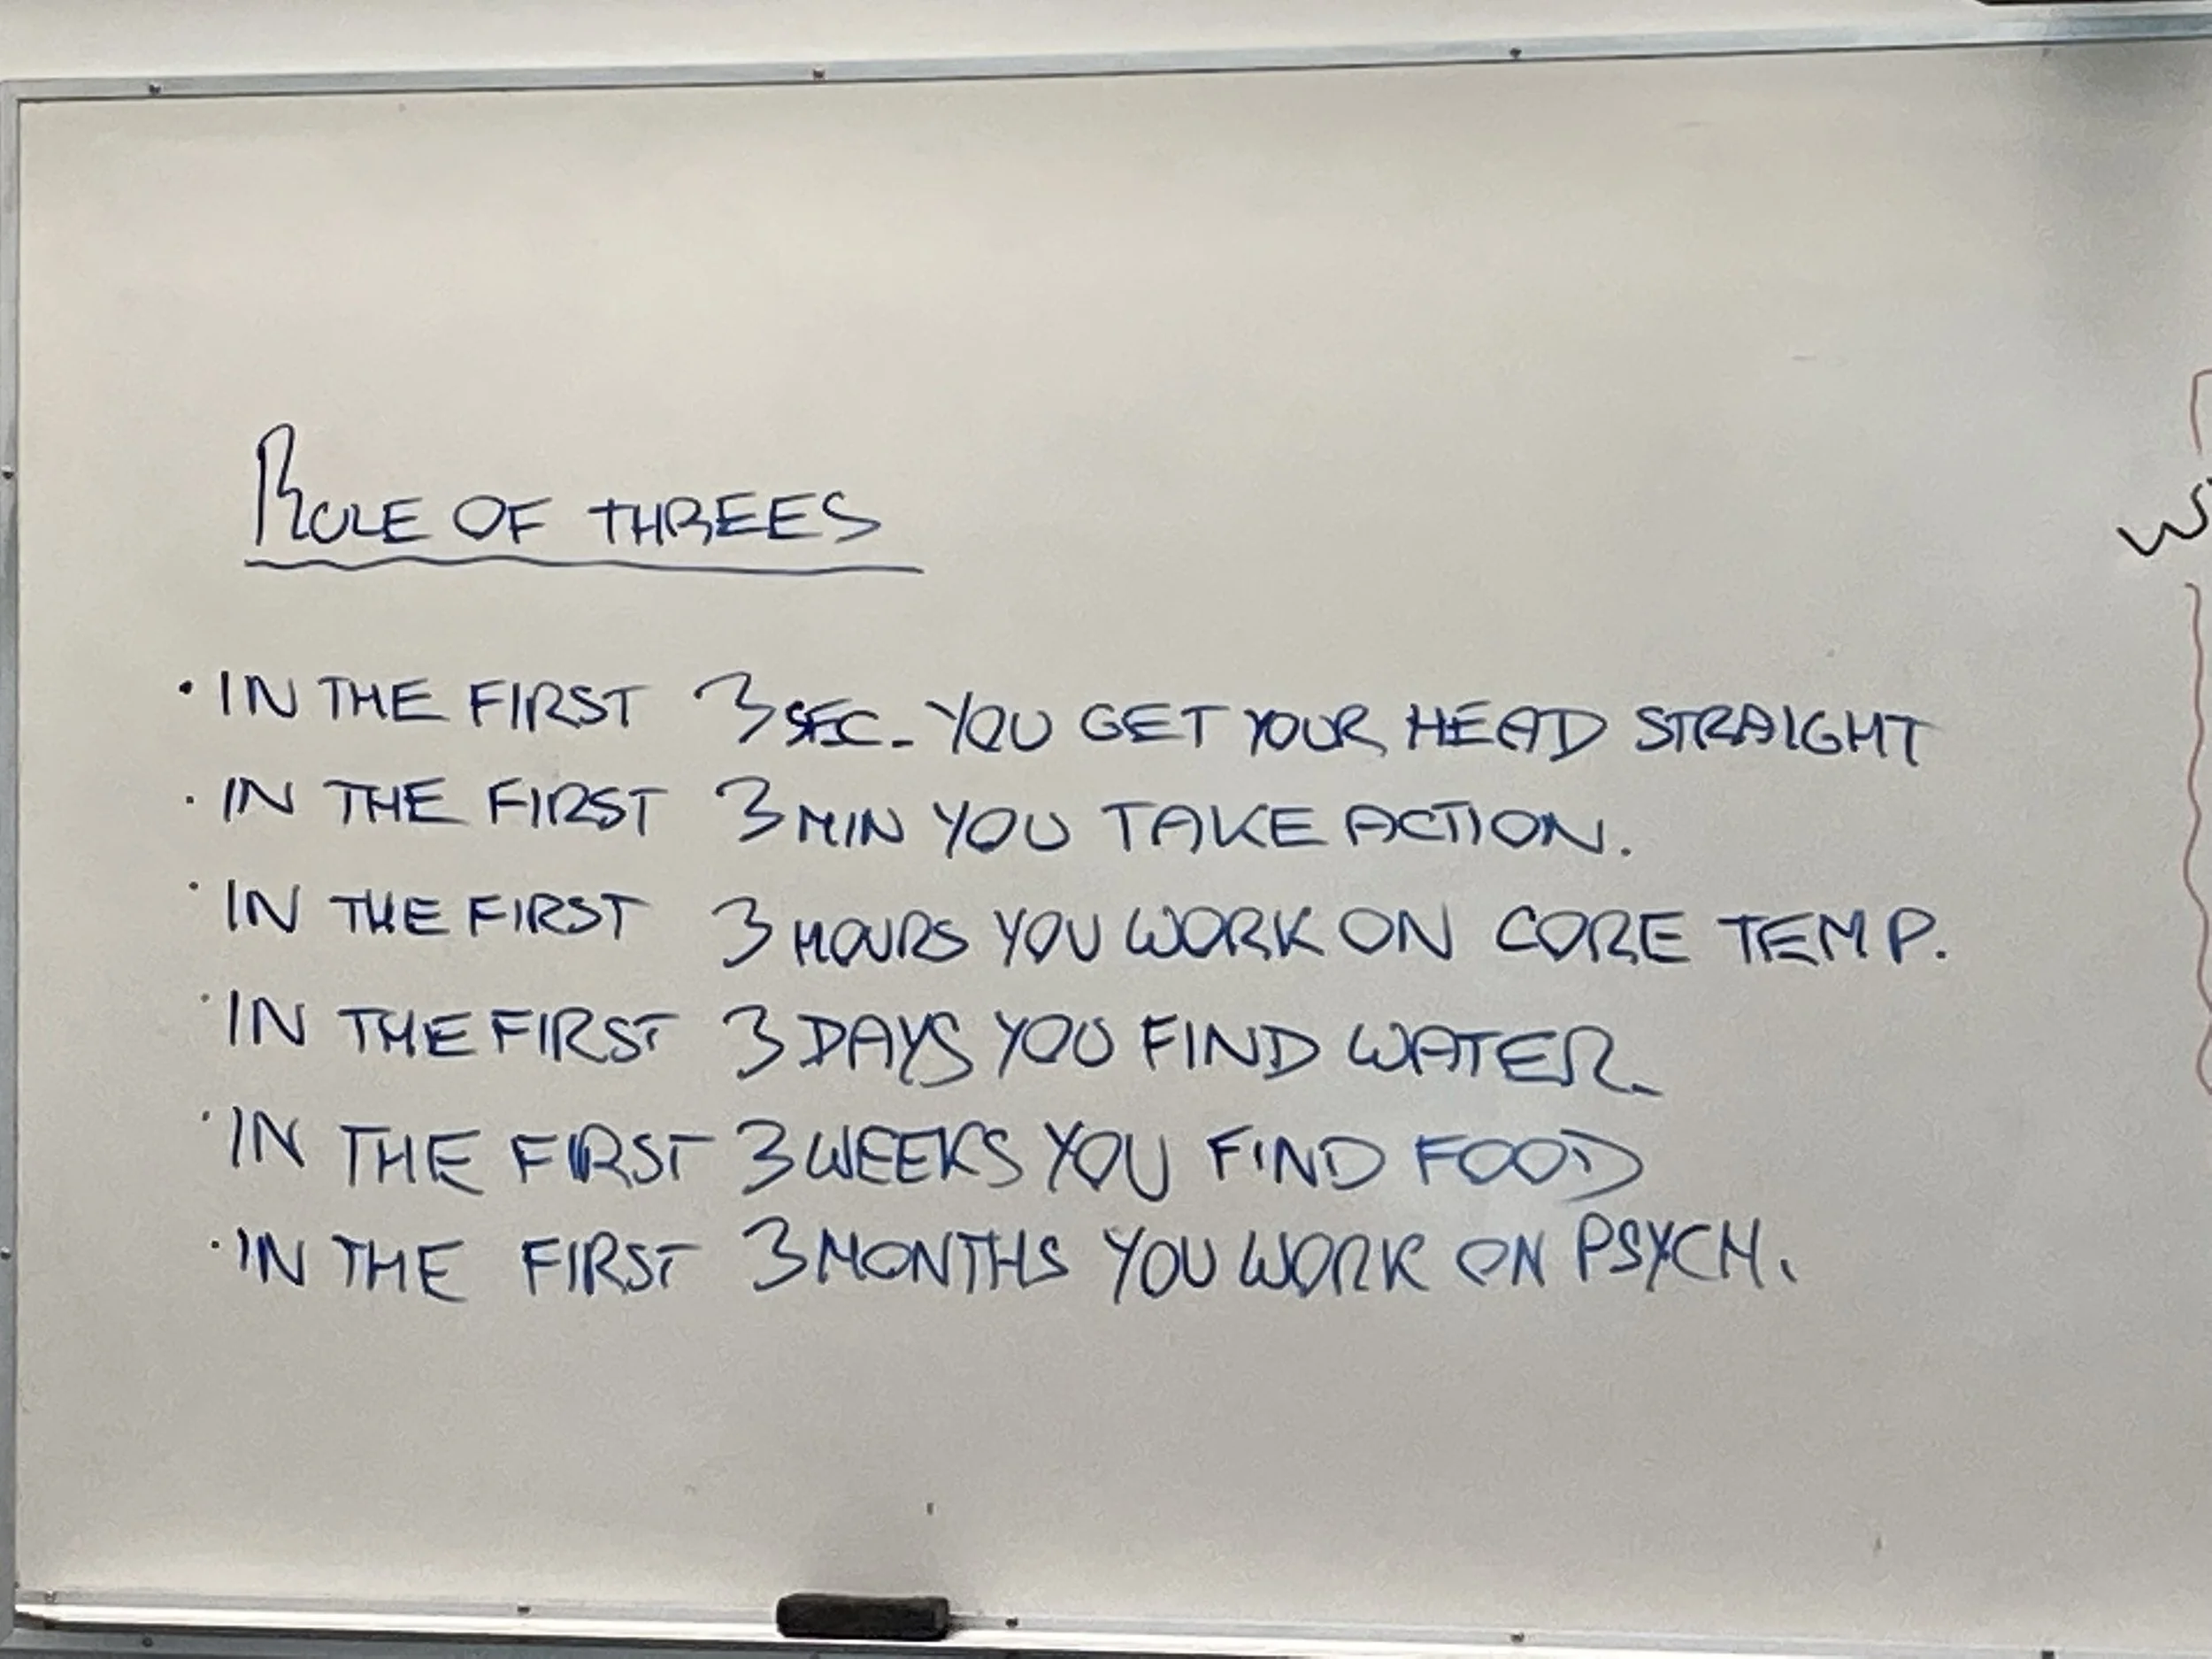 RULE OF THREES
· IN THE FIRST 3 SEC. YOU GET YOUR HEAD STRAIGHT
· IN THE FIRST 3 MIN YOU TAKE ACTION.
· IN THE FIRST 3 HOURS YOU WORK ON CORE TEMP.
· IN THE FIRST 3 DAYS YOU FIND WATER.
· IN THE FIRST 3 WEEKS YOU FIND FOOD
· IN THE FIRST 3 MONTHS YOU WORK ON PSYCH.